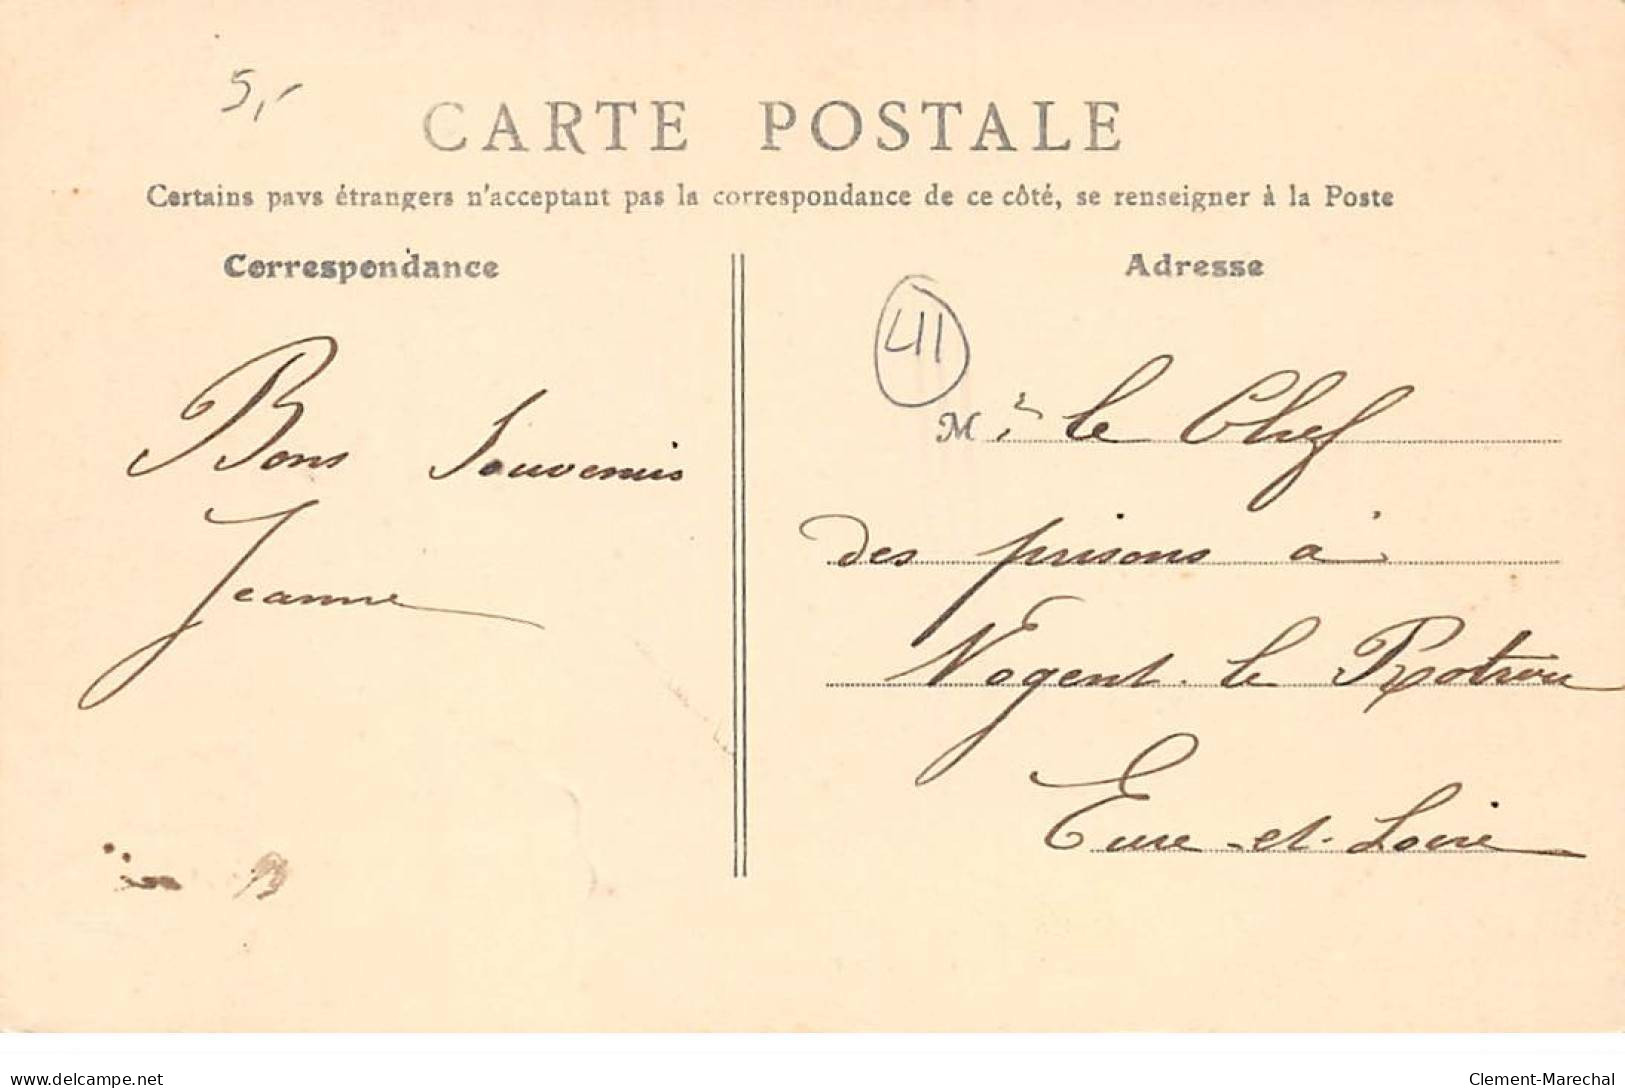 5,-
CARTE POSTALE
Certains pays étrangers n'acceptant pas la correspondance de ce côté, se renseigner à la Poste
Correspondance
Adresse
41
Bons Souvenirs
Jeanne
Mr le Chef
des prisons à
Nogent-le Rotrou
Eure-et-Loire
delcampe.net
Clement-Marechal